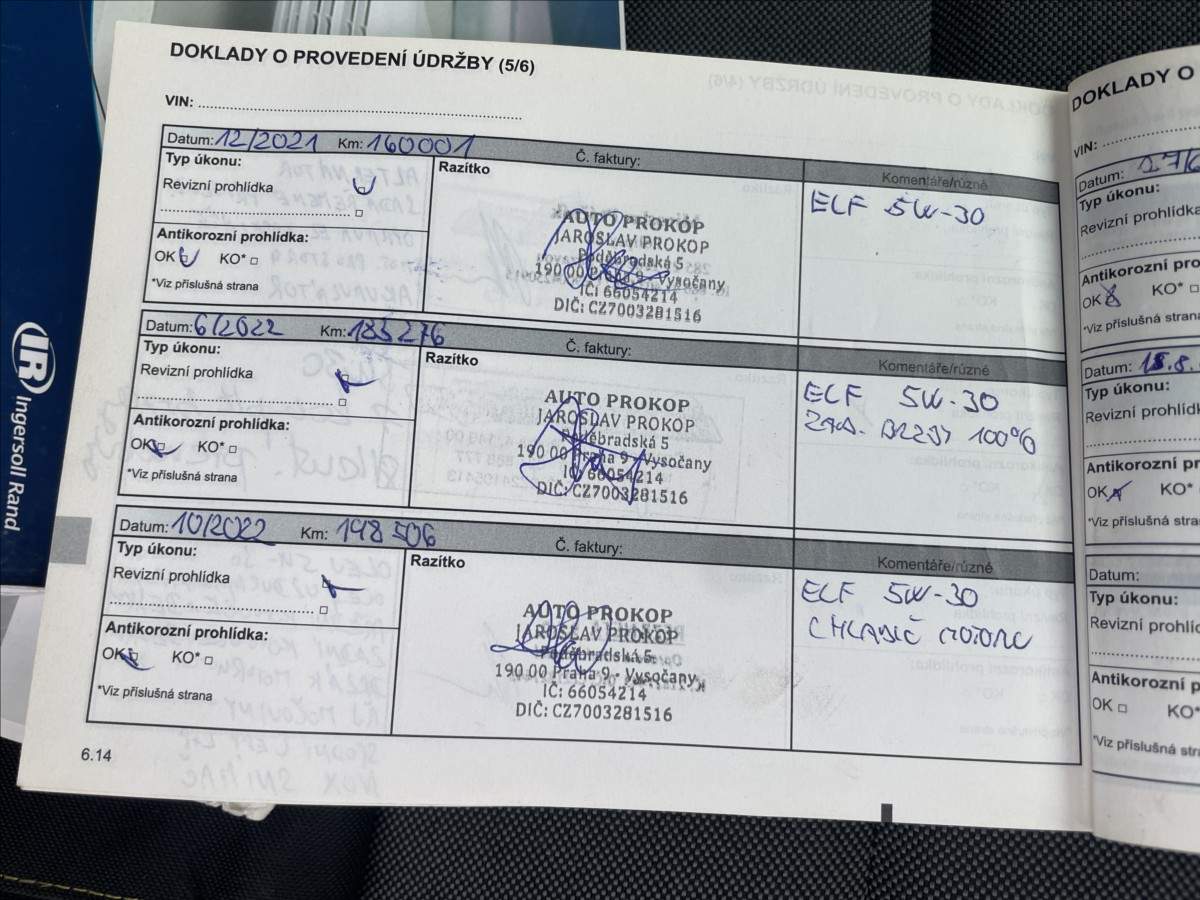 DOKLADY O PROVEDENÍ ÚDRŽBY (5/6)
VIN:
Datum: 12/2021 Km: 160001 Č. faktury:
Typ úkonu:
Revizní prohlídka
Antikorozní prohlídka:
OK KO*
*Viz příslušná strana
Razítko
AUTO PROKOP
JAROSLAV PROKOP
Poděbradská 5
190 00 Praha 9 - Vysočany
IČ: 66054214
DIČ: CZ7003281516
Komentáře/různé
ELF 5W-30
Datum: 6/2022 Km: 185276 Č. faktury:
Typ úkonu:
Revizní prohlídka
Antikorozní prohlídka:
OK KO*
*Viz příslušná strana
Razítko
AUTO PROKOP
JAROSLAV PROKOP
Poděbradská 5
190 00 Praha 9 - Vysočany
IČ: 66054214
DIČ: CZ7003281516
Komentáře/různé
ELF 5W-30
ZAD. BRZDY 100%
Datum: 10/2022 Km: 198506 Č. faktury:
Typ úkonu:
Revizní prohlídka
Antikorozní prohlídka:
OK KO*
*Viz příslušná strana
Razítko
AUTO PROKOP
JAROSLAV PROKOP
Poděbradská 5
190 00 Praha 9 - Vysočany
IČ: 66054214
DIČ: CZ7003281516
Komentáře/různé
ELF 5W-30
CHLADIČ MOTORU
6.14
IR Ingersoll Rand.
DOKLADY O
VIN:
Datum:
Typ úkonu:
Revizní prohlídka
Antikorozní pro
OK KO*
*Viz příslušná stra
Datum: 18.8.
Typ úkonu:
Revizní prohlíd
Antikorozní pr
OK KO*
*Viz příslušná stra
Datum:
Typ úkonu:
Revizní prohlí
Antikorozní p
OK KO*
*Viz příslušná str